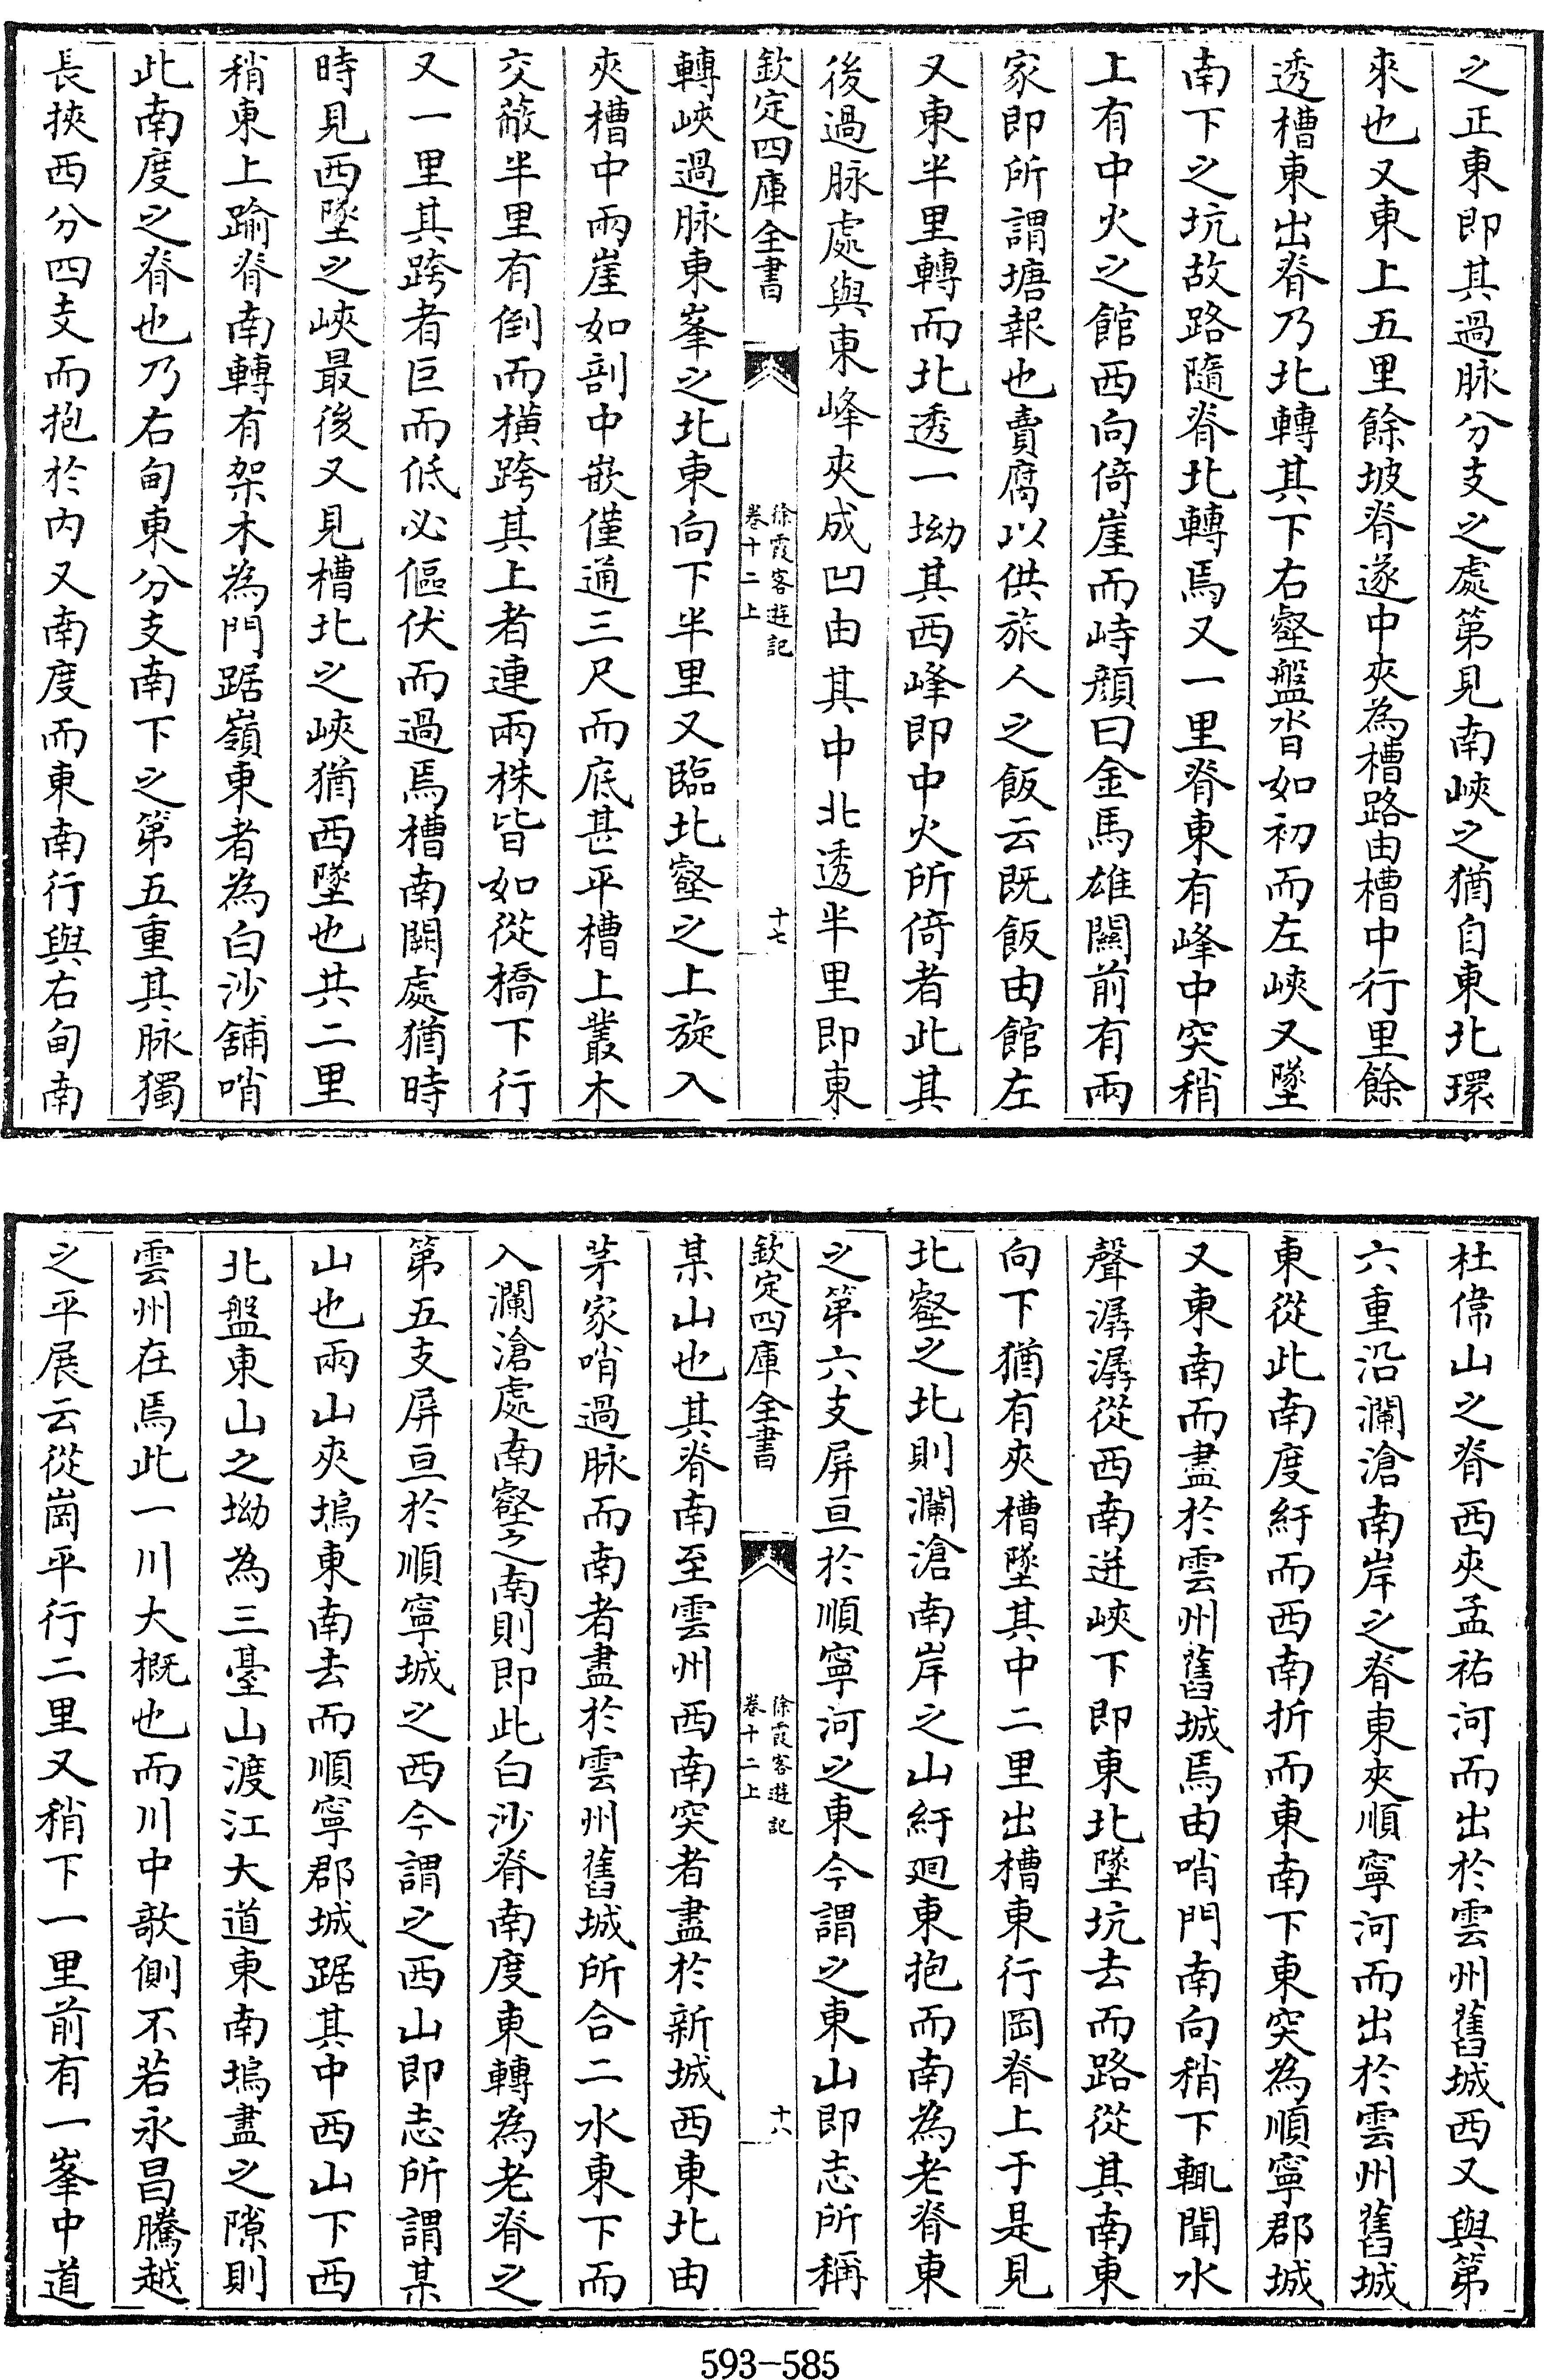 之正東即其過脉分支之處第見南峽之猶自東北環
來也又東上五里餘坡脊遂中夾為槽路由槽中行里餘
透槽東出脊乃北轉其下右壑盤沓如初而左峽又墜
南下之坑故路隨脊北轉焉又一里脊東有峰中突稍
上有中火之館西向倚崖而峙顔曰金馬雄關前有兩
家即所謂塘報也賣腐以供旅人之飯云既飯由館左
又東半里轉而北透一坳其西峰即中火所倚者此其
後過脉處與東峰夾成凹由其中北透半里即東
欽定四庫全書
徐霞客遊記
卷十二上
十七
轉峽過脉東峯之北東向下半里又臨北壑之上旋入
夾槽中兩崖如剖中嵌僅通三尺而底甚平槽上叢木
交蔽半里有倒而橫跨其上者連兩株皆如從橋下行
又一里其跨者巨而低必傴伏而過焉槽南闕處猶時
時見西墜之峽最後又見槽北之峽猶西墜也共二里
稍東上踰脊南轉有架木為門踞嶺東者為白沙舖哨
此南度之脊也乃右甸東分支南下之第五重其脉獨
長挾西分四支而抱於内又南度而東南行與右甸南
杜偉山之脊西夾孟祐河而出於雲州舊城西又與第
六重沿瀾滄南岸之脊東夾順寧河而出於雲州舊城
東從此南度紆而西南折而東南下東突為順寧郡城
又東南而盡於雲州舊城焉由哨門南向稍下輒聞水
聲潺潺從西南迸峽下即東北墜坑去而路從其南東
向下猶有夾槽墜其中二里出槽東行岡脊上于是見
北壑之北則瀾滄南岸之山紆廻東抱而南為老脊東
之第六支屏亘於順寧河之東今謂之東山即志所稱
欽定四庫全書
徐霞客遊記
卷十二上
十八
某山也其脊南至雲州西南突者盡於新城西東北由
茅家哨過脉而南者盡於雲州舊城所合二水東下而
入瀾滄處南壑之南則即此白沙脊南度東轉為老脊之
第五支屏亘於順寧城之西今謂之西山即志所謂某
山也兩山夾塢東南去而順寧郡城踞其中西山下西
北盤東山之坳為三臺山渡江大道東南塢盡之隙則
雲州在焉此一川大概也而川中欹側不若永昌騰越
之平展云從崗平行二里又稍下一里前有一峯中道
593-585